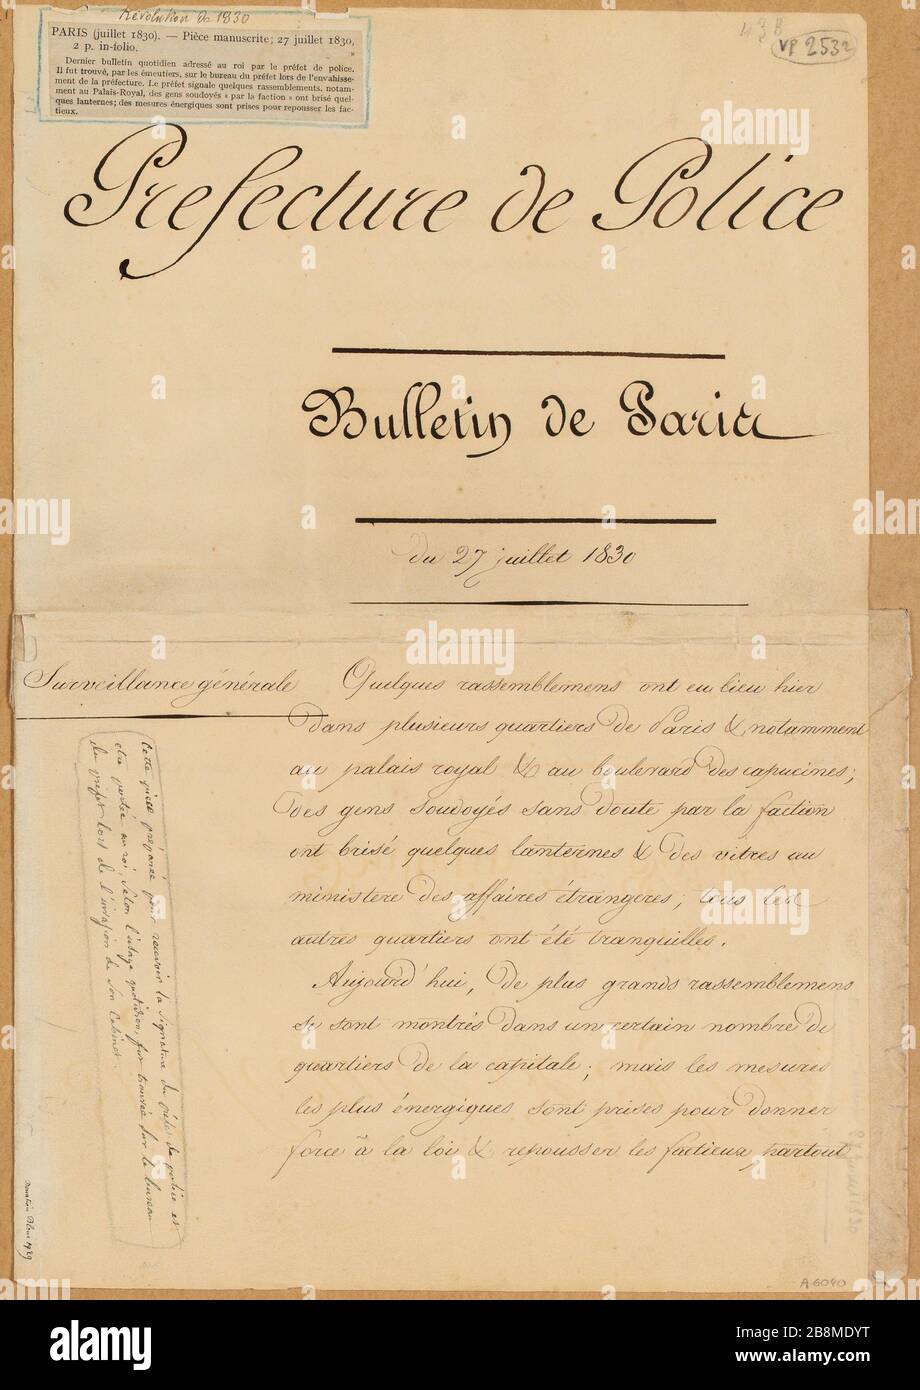 Révolution de 1830
PARIS (juillet 1830). — Pièce manuscrite; 27 juillet 1830,
2 p. in-folio. »
Dernier bulletin quotidien adressé au roi par le préfet de police.
Il fut trouvé, par les émeutiers, sur le bureau du préfet lors de l'envahisse-
ment de la préfecture. Le préfet signale quelques rassemblements, notam-
ment au Palais-Royal, des gens soudoyés « par la faction » ont brisé quel-
ques lanternes; des mesures énergiques sont prises pour repousser les fac-
tieux.
43 B
VP 2532
Prefecture de Police
Bulletin de Paris
du 27 juillet 1830
Surveillance générale
Quelques rassemblemens ont eu lieu hier
dans plusieurs quartiers de Paris & notamment
au palais royal & au boulevard des capucines;
des gens soudoyés sans doute par la faction
ont brisé quelques lanternes & des vitres au
ministere des affaires étrangeres; tous les
autres quartiers ont été tranquilles.
Aujourd'hui, de plus grands rassemblemens
se sont montrés dans un certain nombre de
quartiers de la capitale; mais les mesures
les plus énergiques sont prises pour donner
force à la loi & repousser les factieux partout
Cette pièce préparée pour recevoir la signature du préfet de police et
être portée au roi, selon l'usage quotidien, fut trouvée sur le bureau
du préfet lors de l'invasion de son cabinet.
A 6040
alamy
Image ID: 2B8MDYT
www.alamy.com